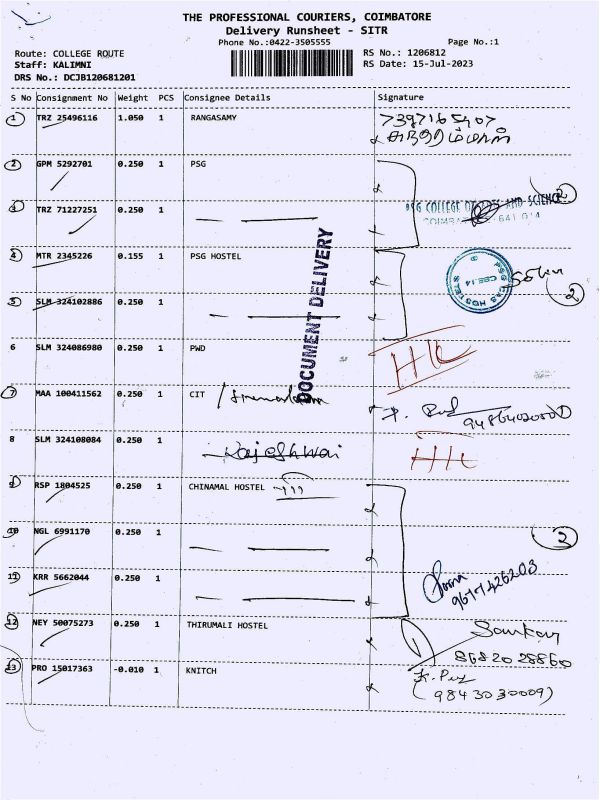 THE PROFESSIONAL COURIERS, COIMBATORE
Delivery Runsheet - SITR
Phone No.:0422-3505555 Page No.:1
Route: COLLEGE ROUTE RS No.: 1206812
Staff: KALIMNI RS Date: 15-Jul-2023
DRS No.: DCJB120681201
S No Consignment No Weight PCS Consignee Details Signature
1 TRZ 25496116 1.050 1 RANGASAMY
2 GPM 5292701 0.250 1 PSG
2
3 TRZ 71227251 0.250 1 PSG COLLEGE OF ARTS AND SCIENCE
641 014
4 MTR 2345226 0.155 1 PSG HOSTEL
2
5 SLM 324102886 0.250 1
DOCUMENT DELIVERY
6 SLM 324086980 0.250 1 PWD
7 MAA 100411562 0.250 1 CIT
8 SLM 324108084 0.250 1 Rajeshwai
9 RSP 1804525 0.250 1 CHINAMAL HOSTEL
10 NGL 6991170 0.250 1
3
11 KRR 5662044 0.250 1
9677426203
12 NEY 50075273 0.250 1 THIRUMALI HOSTEL Sankar
8682028860
13 PRO 15017363 -0.010 1 KNITCH
(9843030009)